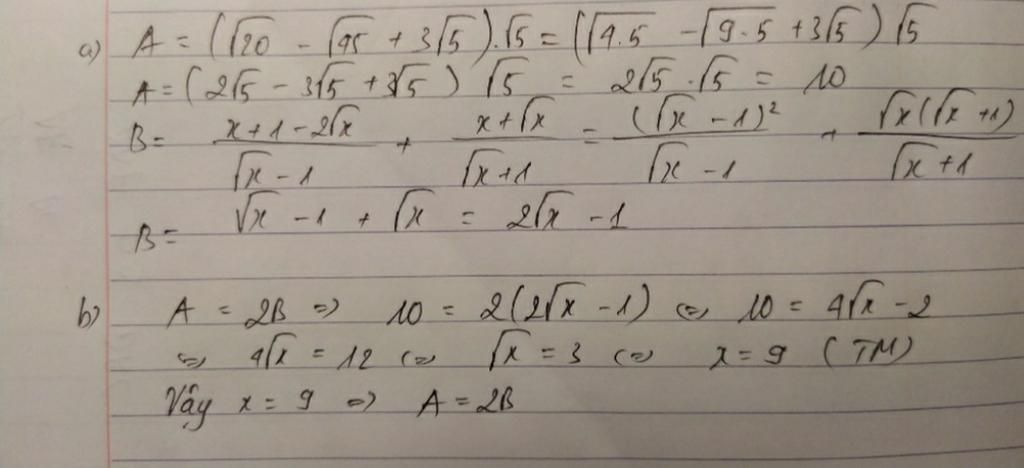 a) A = (√20 - √45 + 3√5).√5 = (√4.5 - √9.5 + 3√5) √5
A = (2√5 - 3√5 + 3√5) √5 = 2√5 . √5 = 10
B = (x + 1 - 2√x)/(√x - 1) + (x + √x)/(√x + 1) = (√x - 1)²/(√x - 1) + √x(√x + 1)/(√x + 1)
B = √x - 1 + √x = 2√x - 1
b) A = 2B => 10 = 2(2√x - 1) <=> 10 = 4√x - 2
<=> 4√x = 12 <=> √x = 3 <=> x = 9 (TM)
Vậy x = 9 => A = 2B